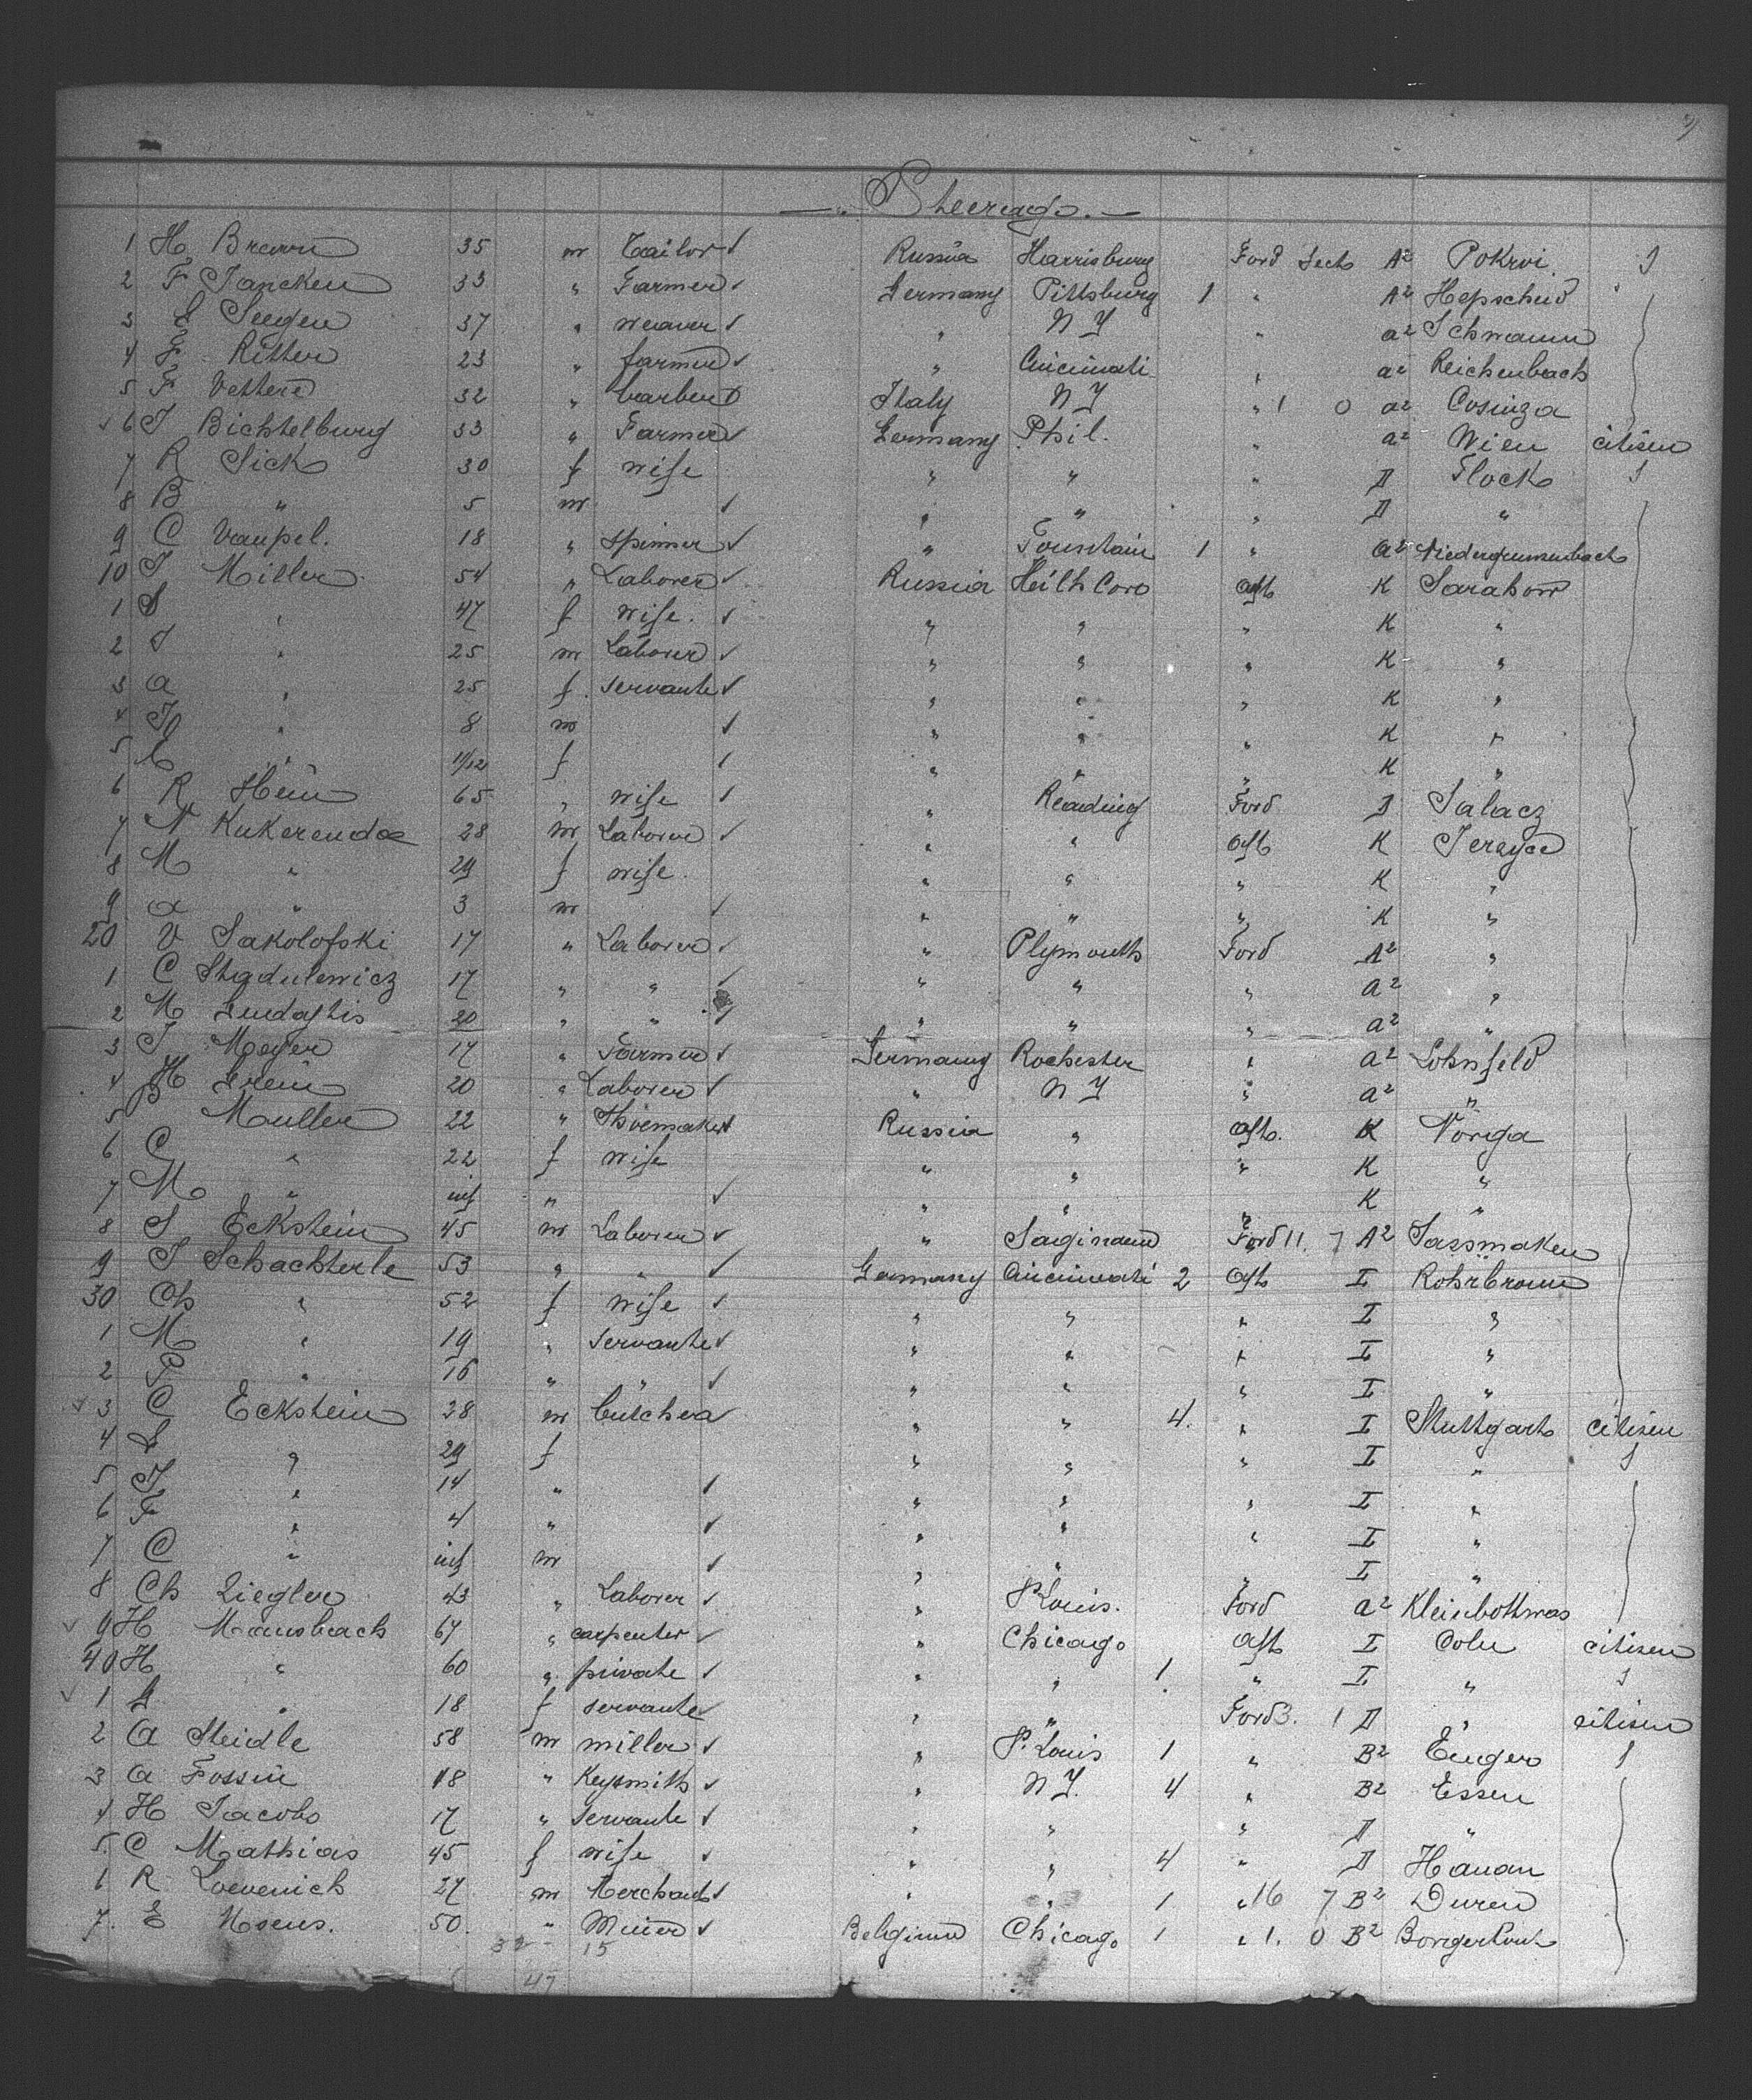 Steerage.
1 H Brown 35 m Tailor Russia Harrisburg Ford Deck A2 Pokroi
2 F Jancken 33 " Farmer Germany Pittsburg 1 " A2 Hepscheid
3 S Seegen 37 " weaver " N Y " a2 Schwann
4 F Ritter 23 " farmer " Cincinnati " a2 Reichenbach
5 F Vettere 32 " barber Italy N Y " 1 0 a2 Cosinza
6 J Bichtelburg 33 " Farmer Germany Phil. " a2 Wien citisen
7 R Sick 30 f wife " " " D Flock
8 B " 5 m " " " D "
9 C Vaupel. 18 " spinner " Fountain 1 " a2 Niedergrumenbach
10 J Miller 54 " Laborer Russia Heilh Coro aft K Saratow
1 S " 47 f wife. " " " K "
2 J " 25 m Laborer " " " K "
3 a " 25 f servante " " " K "
4 " 8 m " " " K "
5 " 11/12 f " " " K "
6 R Hein 65 " wife " Reading Ford D Salacz
7 N Kukerenda 28 m Laborer " " aft K
8 M " 29 f wife. " " " K "
9 a " 3 m " " " K "
20 V Sakolofski 17 " Laborer " Plymouth Ford A2 "
1 C Stadulewicz 17 " " " " " a2 "
2 M 20 " " " " " a2 "
3 J Meyer 17 " Farmer Germany Rochester " a2 Lohnfeld
4 H 20 " Laborer " N Y " a2 "
5 B Muller 22 " Shoemaker Russia " aft. K Norga
6 C " 22 f wife " " " K "
7 M " inf " " " " K "
8 S Eckstein 45 m Laborer " Saginaw Ford 11. 7 A2 Sassmaken
9 J Schachterle 53 " " Germany Cincinnati 2 aft I Rohrbronn
30 Ch " 52 f wife " " " I "
1 M " 19 " servante " " " I "
2 P " 16 " " " " " I "
3 C Eckstein 28 m butcher " " 4. " I Stuttgart citisen
4 L " 29 f " " " I "
5 J " 14 " " " " I "
6 F " 4 " " " " I "
7 C " inf m " " " I "
8 Ch Ziegler 43 " Laborer " St Louis. Ford a2 Kleinbottwar
9 H Mansbach 67 " carpenter " Chicago aft I Coln citisen
40 H " 60 " private " " 1. " I "
1 L " 18 f servante " " Ford 3. 1 D " citisen
2 A Steidle 58 m miller " St Louis 1 " B2 Enger
3 A Fossin 18 " Keysmith " N Y. 4 " B2 Essen
4 H Jacobs 17 " servante " " " D "
5. C Mathias 45 f wife " " 4 " D Hanau
6 R Loevenich 27 m Merchant " " 1 " 16 7 B2 Duren
7. E 50. " Miner Belgium Chicago 1 " 1. 0 B2 Borgerhout
32 - 15
47